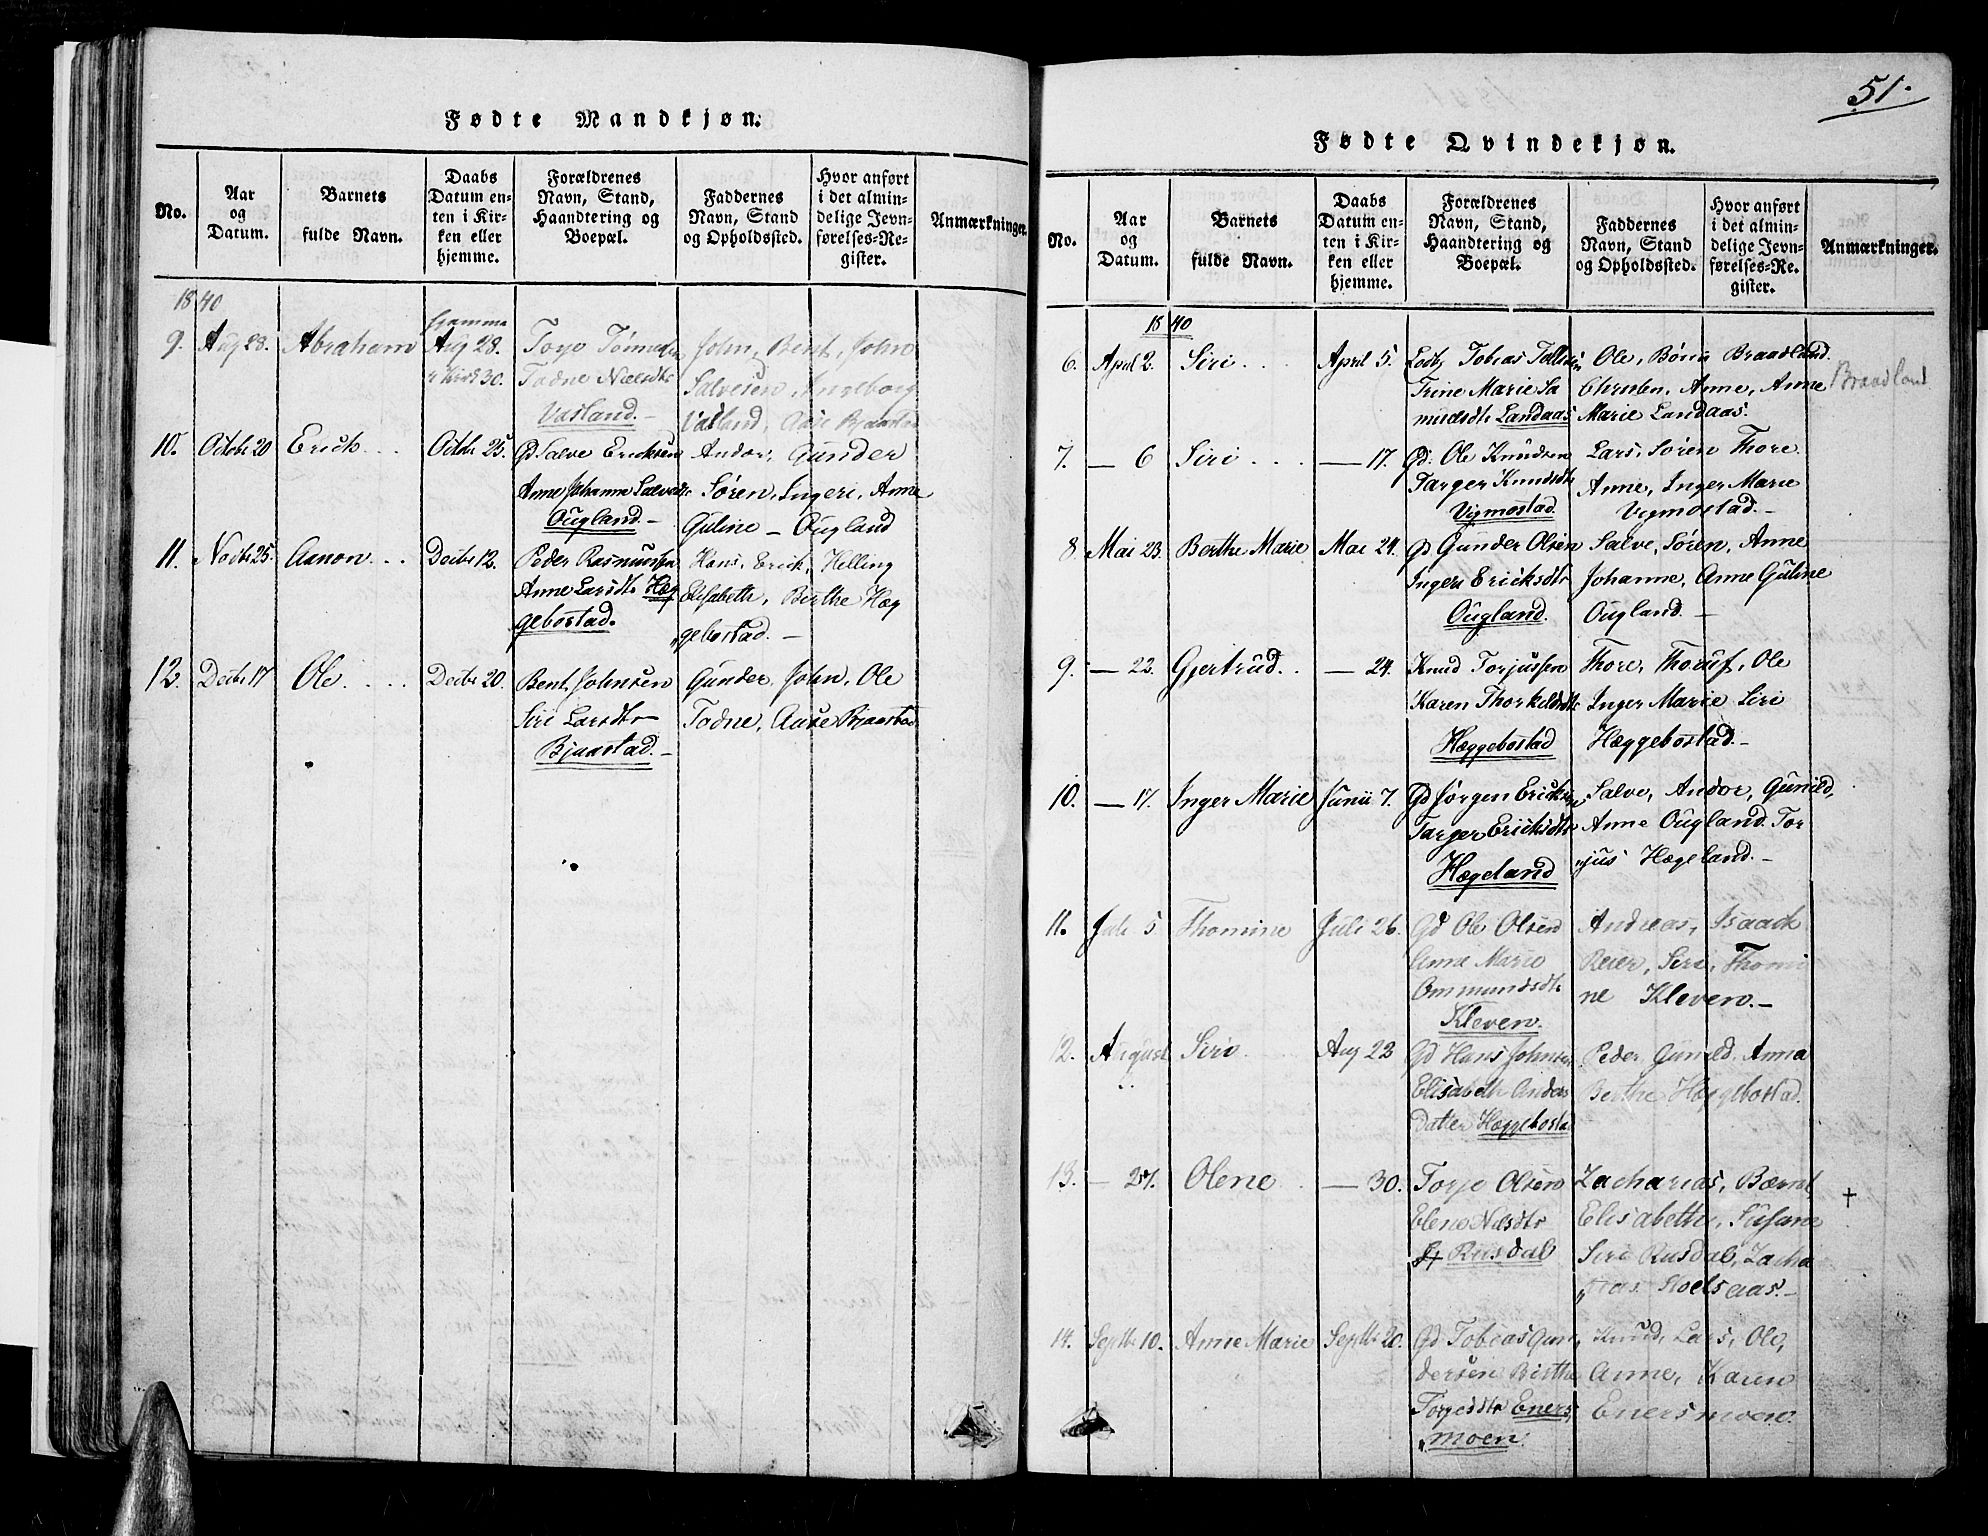 Fødte Mandkjøn.
No.
Aar
og
Datum.
Barnets
fulde Navn.
Daabs
Datum en-
ten i Kir-
ken eller
hjemme.
Forældrenes
Navn, Stand,
Haandtering og
Boepæl.
Faddernes
Navn, Stand
og Opholdssted.
Hvor anført
i det almin-
delige Jevn-
førelses-Re-
gister.
Anmærkninger.
1840
9. Aug 28. Abraham
hjemme
Aug 28.
i Kirk 30.
Torje
Tadne Nielsdtr
Vasland. –
John, Bent, John
Salvesen, Ingeborg
Vasland, Aase Bjaastad
10. Octobr 20 Erick . . . Octobr 25.
Gd Salve Ericksen
Anne Johanne Salvesdtr
Ougland. –
Andor, Gunder
Søren, Ingeri, Anne
Guline – Ougland
11. Novbr 25. Aanon . . . Decbr 12.
Peder Rasmussen
Anne Larsdtr Hæg
gebostad.
Hans, Erick, Helling
Elisabeth, Berthe Hæg
„gebostad. –
12. Decbr 17 Ole . . . . Decbr 20.
Bent Johnsen
Siri Larsdtr
Bjaastad. –
Gunder, John, Ole
Tadne, Aase Bjaastad
51.
Fødte Qvindekjøn.
No.
Aar
og
Datum.
Barnets
fulde Navn.
Daabs
Datum en-
ten i Kir-
ken eller
hjemme.
Forældrenes
Navn, Stand,
Haandtering og
Boepæl.
Faddernes
Navn, Stand
og Opholdssted.
Hvor anført
i det almin-
delige Jevn-
førelses-Re-
gister.
Anmærkninger.
1840
6. April 2. Siri . . . April 5.
Tobias
Trine Marie Sa
muelsdtr Landaas
Ole, Børni Braadland.
Christen, Anne, Anne
Marie Landaas.
Braadland
7. — 6 Siri . . . — 17.
Gd. Ole Knudsen
Targer Knudsdtr
Vigmostad
Lars, Søren Thore
Anne, Inger Marie
Vigmostad. –
8. Mai 23. Berthe Marie Mai 24.
Gd Gunder Olsen
Ingeri Ericksdtr
Ougland.
Salve, Søren, Anne
Johanne, Anne Guline
Ougland. –
9. — 22. Gjertrud . . — 24.
Knud Torjussen
Karen Thorkildsdtr
Hæggebostad
Thore, Ole
Inger Marie Siri
Hæggebostad. –
10. — 17. Inger Marie Junii 7.
Gd Jørgen Ericksen
Targer Ericksdtr
Hægeland
Salve, Andor, Gunild,
Anne Ougland. Tor
„jus Hægeland. –
11. Juli 5 Thomine Juli 26.
Gd Ole Olsen
Anne Marie
Ommundsdtr
Kleven.
Andreas, Isaack
Reier, Siri, Thomi
ne Kleven. –
12. August Siri Aug 23
Gd Hans Johnsen
Elisabeth Anders
Datter Hæggebostad
Peder, Gunild, Anna
Berthe Hæggebostad.
13. — 27. Olene — 30.
Torje Olsen
Elene Nilsdtr
Riisdal
Zacharias, Bærnt,
Elisabeth, Susane
Siri Riisdal, Zacha
„rias Stoelsaas. –
†
14. Septbr 10. Anne Marie Septbr 20.
Gd Tobias Gun
dersen Birthe
Torjesdtr Eners
„moen.
Knud, Lars, Ole,
Anne, Karen
Enersmoen.